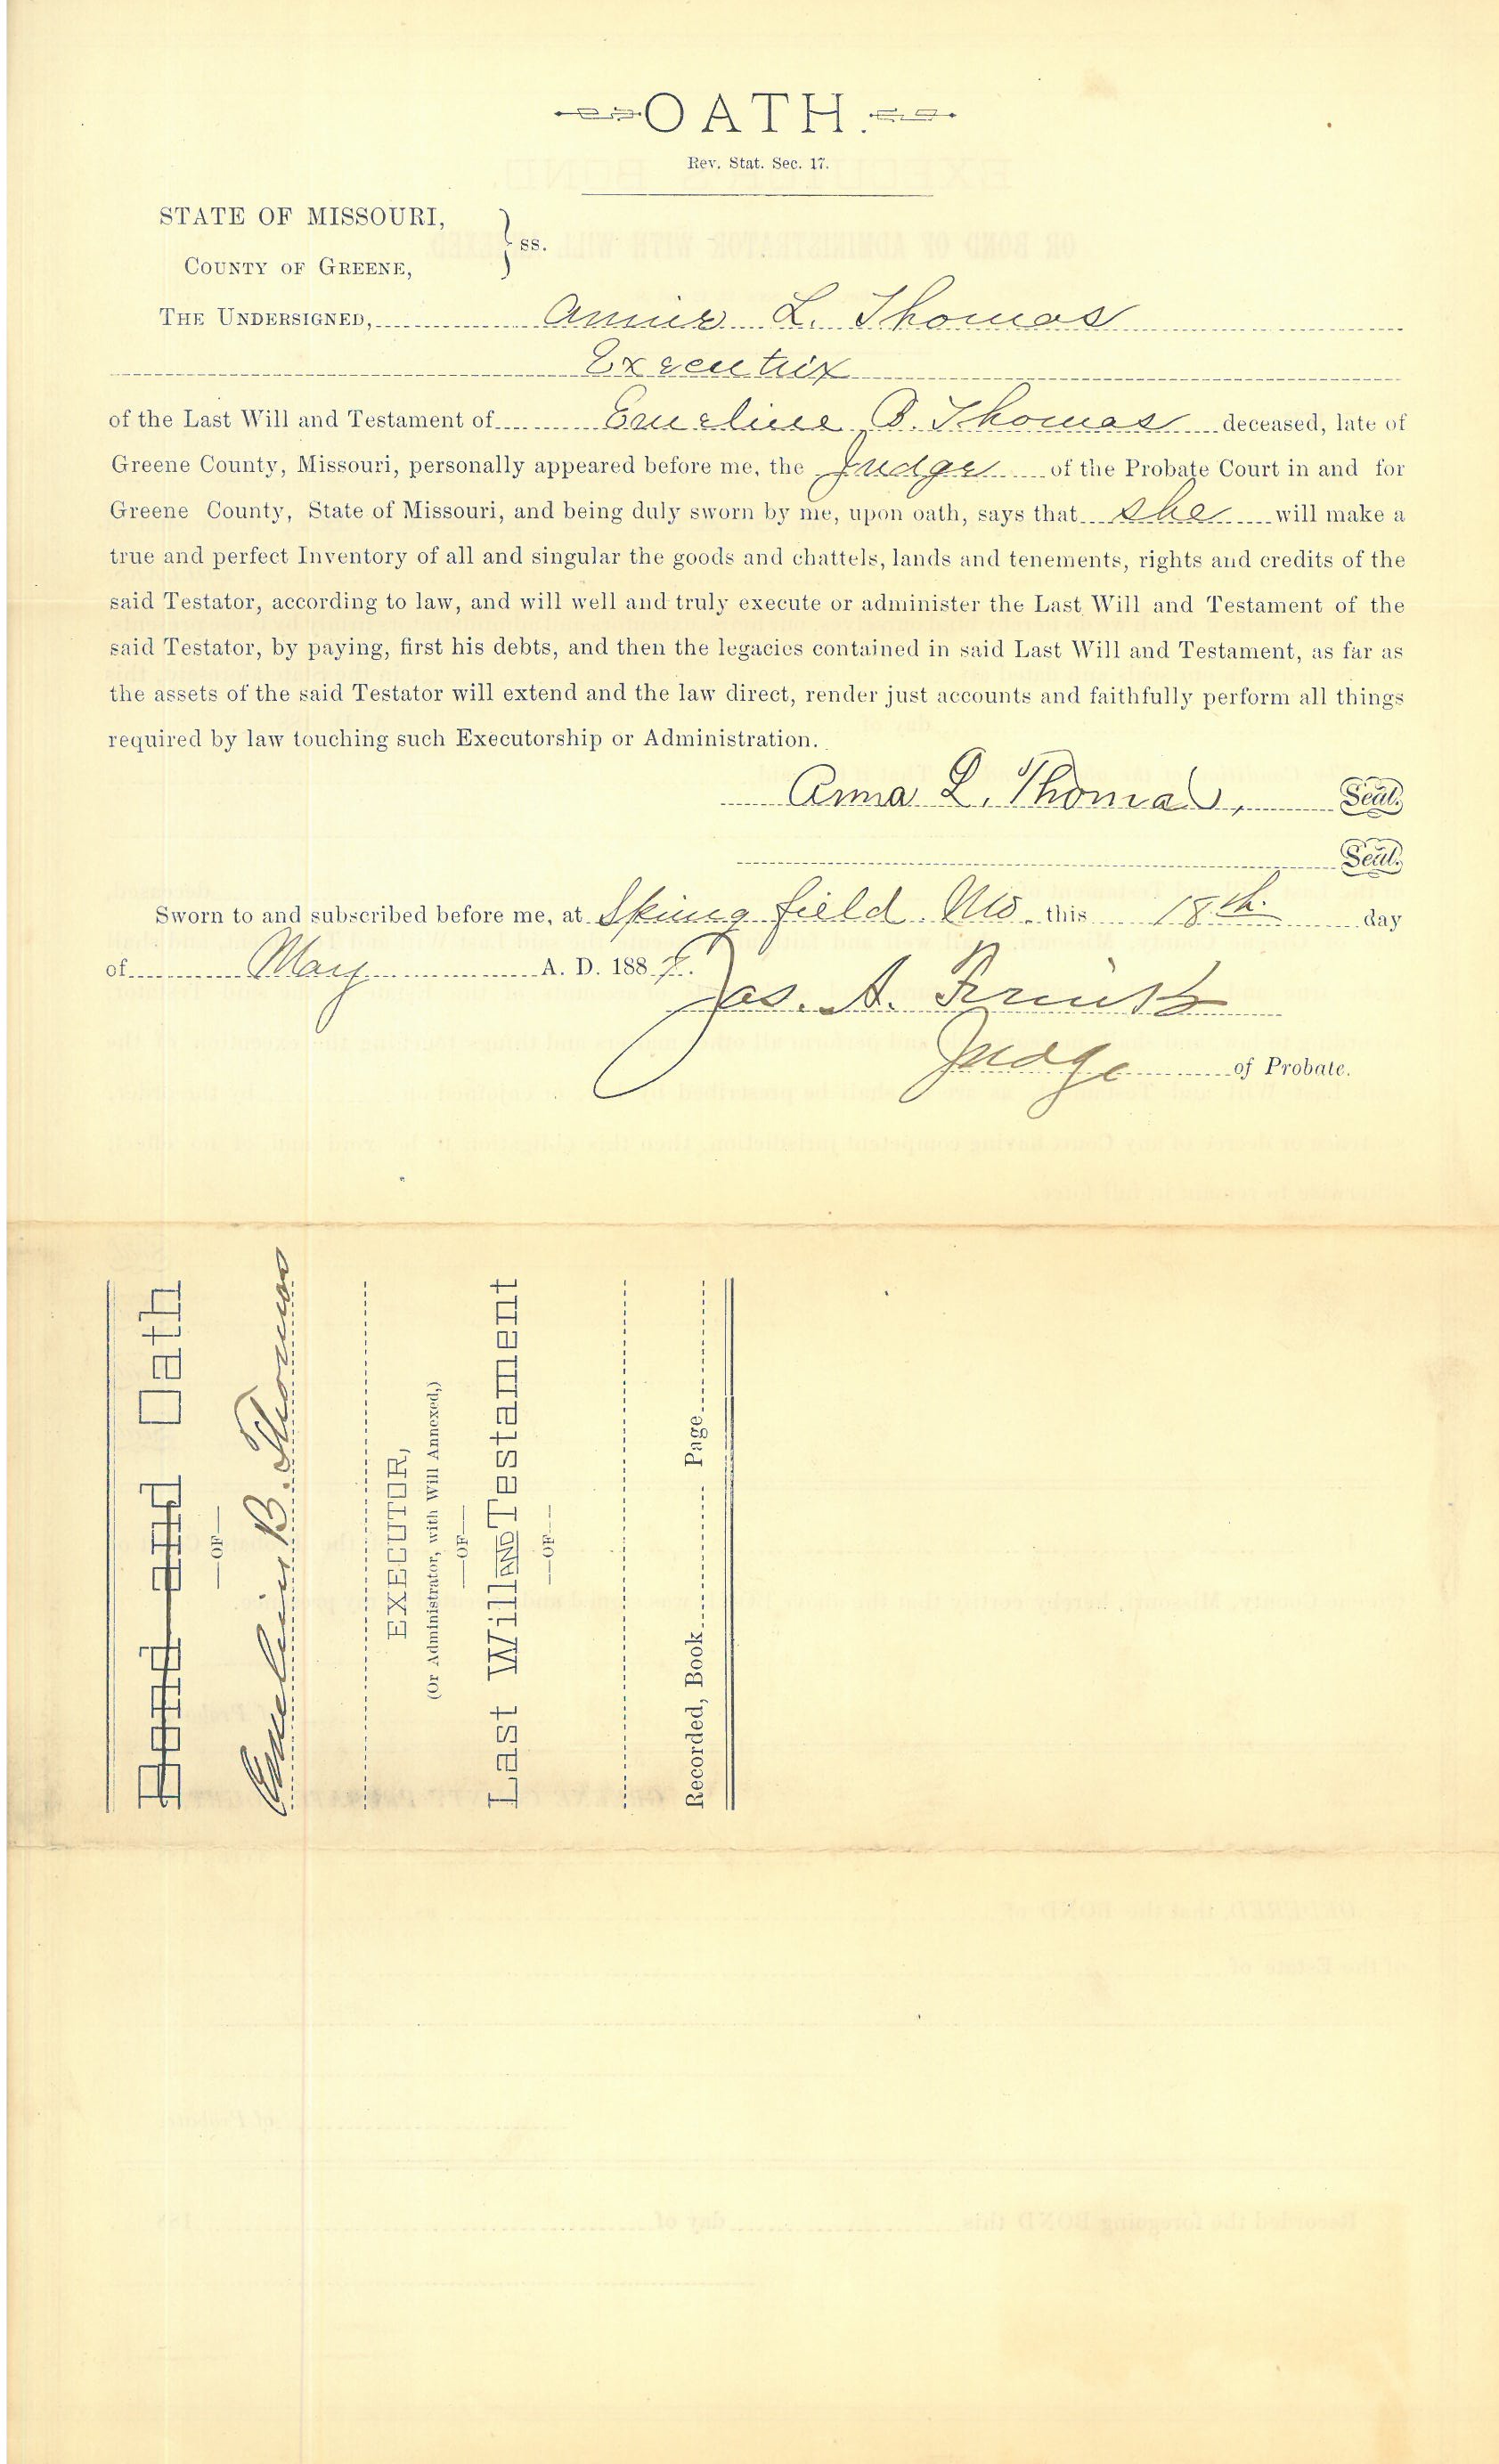 OATH.
Rev. Stat. Sec. 17.
STATE OF MISSOURI,
COUNTY OF GREENE,
ss.
THE UNDERSIGNED, Annie L. Thomas
Executrix
of the Last Will and Testament of Emeline B. Thomas deceased, late of
Greene County, Missouri, personally appeared before me, the Judge of the Probate Court in and for
Greene County, State of Missouri, and being duly sworn by me, upon oath, says that she will make a
true and perfect Inventory of all and singular the goods and chattels, lands and tenements, rights and credits of the
said Testator, according to law, and will well and truly execute or administer the Last Will and Testament of the
said Testator, by paying, first his debts, and then the legacies contained in said Last Will and Testament, as far as
the assets of the said Testator will extend and the law direct, render just accounts and faithfully perform all things
required by law touching such Executorship or Administration.
Anna L. Thomas, Seal.
Seal.
Sworn to and subscribed before me, at Springfield Mo. this 18th. day
of May A. D. 188
Jas. A.
Judge of Probate.
Bond and Oath
—OF—
Emeline B. Thomas
EXECUTOR,
(Or Administrator, with Will Annexed,)
—OF—
Last Will AND Testament
—OF—
Recorded, Book Page